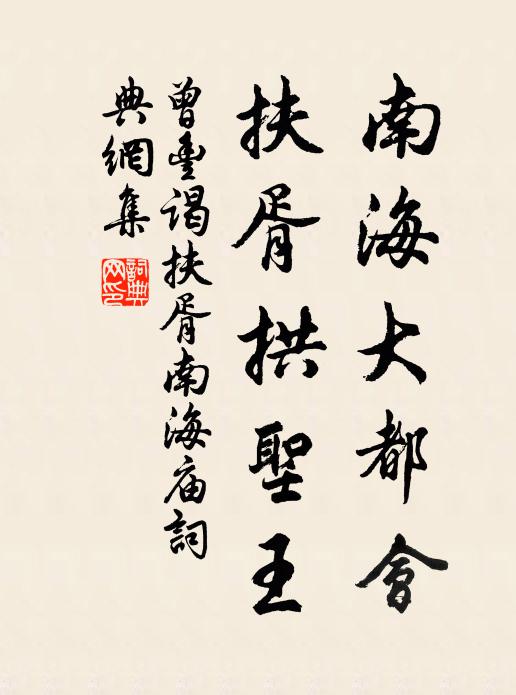 南海大都會
扶胥拱聖王
曾豐谒扶胥南海庙詞
典網集
詞典
网印